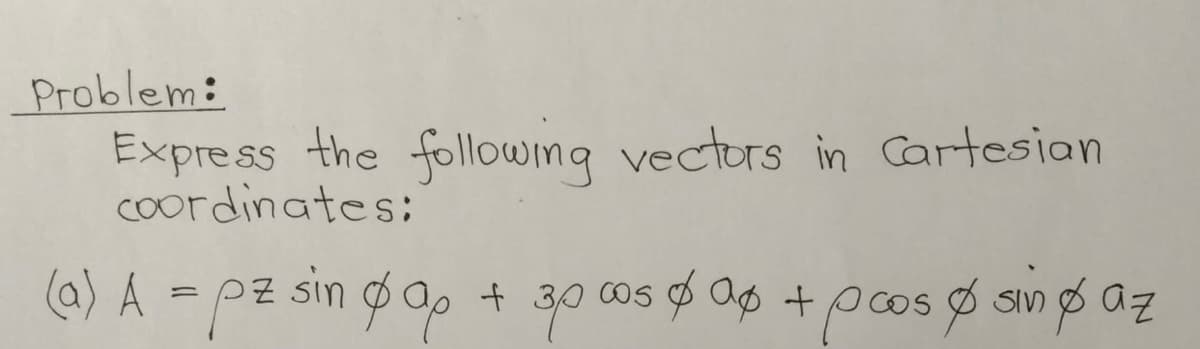 Problem:
Express the following vectors in Cartesian
coordinates:
(a) A = ρz sin ϕ aρ + 3ρ cos ϕ aϕ + ρ cos ϕ sin ϕ az